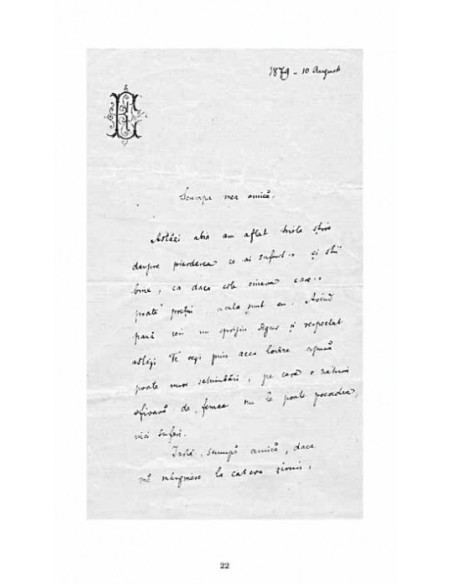 1879 - 10 August
Scumpa mea amică.
Astăzi abia am aflat trista știre
despre pierderea ce ai suferit și știi
bine, că daca este cineva care
poate prețui acela sunt eu. Având
până ieri un sprijin sigur și respectat
astăzi Te vezi prin acea lovire spusă
poate unor schimbări, pe care o natură
de femee nu le poate pricepe,
nici suferi.
Iartă, scumpă amică, daca
mă mărginesc la cateva șiruri,
22